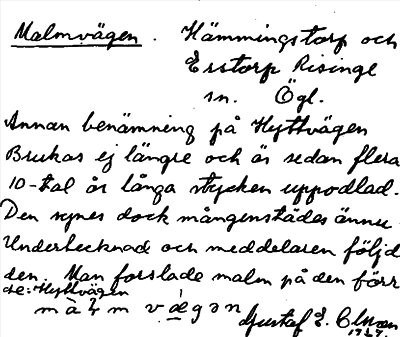 Malmvägen. Hämmingstorp och
Erstorp Risinge
sn. Ögl.
Annan benämning på Hyttvägen
Brukas ej längre och är sedan flera
10-tal år långa stycken uppodlad.
Den synes dock mångenstädes ännu.
Undertecknad och meddelaren följde
den. Man forslade malm på den förr
de: Hyttvägen
màlm vǽgən
Gustaf E. Olsson